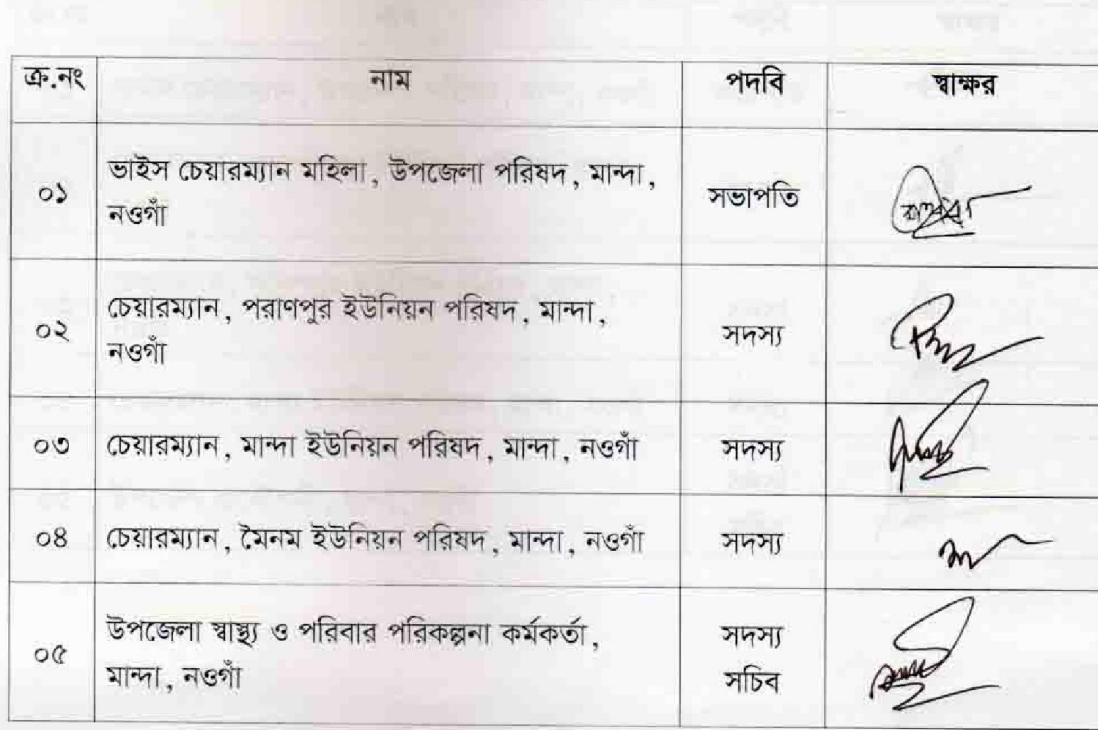 ক্র.নং নাম পদবি স্বাক্ষর
০১ ভাইস চেয়ারম্যান মহিলা, উপজেলা পরিষদ, মান্দা, সভাপতি
নওগাঁ
০২ চেয়ারম্যান, পরাণপুর ইউনিয়ন পরিষদ, মান্দা, সদস্য
নওগাঁ
০৩ চেয়ারম্যান, মান্দা ইউনিয়ন পরিষদ, মান্দা, নওগাঁ সদস্য
০৪ চেয়ারম্যান, মৈনম ইউনিয়ন পরিষদ, মান্দা, নওগাঁ সদস্য
০৫ উপজেলা স্বাস্থ্য ও পরিবার পরিকল্পনা কর্মকর্তা, সদস্য
মান্দা, নওগাঁ সচিব